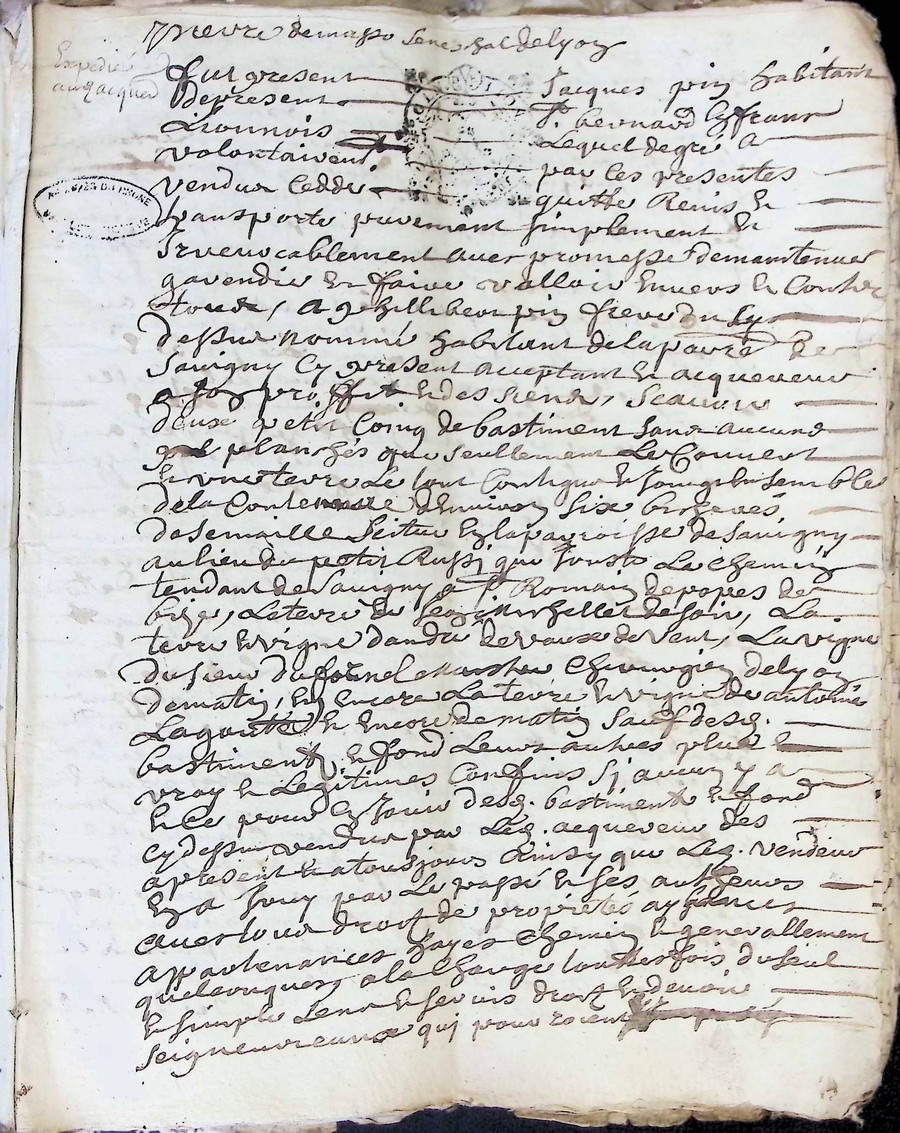 pierre demasso seneschal de lyon
Expedié
au sr acquer
fut present Jacques pin habitant
de present St. bernard en franc
Lionnois Lequel de gré a
volontairemt.
vendu cedde par ces presentes
quitté Remis et
transporte purement simplement et
Irrevocablement avec promesse de maintenir
garendir et faire valloir envers et contre
tous, a philibert pin frere du sy
dessus nommé habitant de la parre de
Savigny Cy present acceptant et acquereur
a son proffit et des siens, Scavoir
deux petit Coing de bastiment sans aucuns
planchés que seullement Le Couvert
et une terre Le tout Contigue et Joinct ensemble
de la Contenue d'environ six bicherés
de semaille Scitue en la parroisse de Savigny
au lieu du petit Russy que Jouste Le chemin
tendant de Savigny a St. Romain de popes de
bize, La terre de de soir, La
terre et vigne d'andré devaux de vent, La vigne
du sieur maistre Chirurgien de lyon
de matin, et encore La terre et vigne de antoine
Lagoutte et Encore de matin sauf desd.
bastiments et fond Leurs autres plus et
vray et Legitimes Confins sj aucun y a
et ce pour en Jouir desd. bastiments et fond
cy dessus vendus par Led. acquereur des
apresent et a tousjours Ainsy que Led. vendeur
en a Jouy par Le passé et ses autheurs
avec tous droits de proprietés aysances
appartenances hayes Chemin et generallement
quelconques, a la charge touttesfois du seul
et simple Cens et servis droits et devoirs
seigneureaux qui pourroient